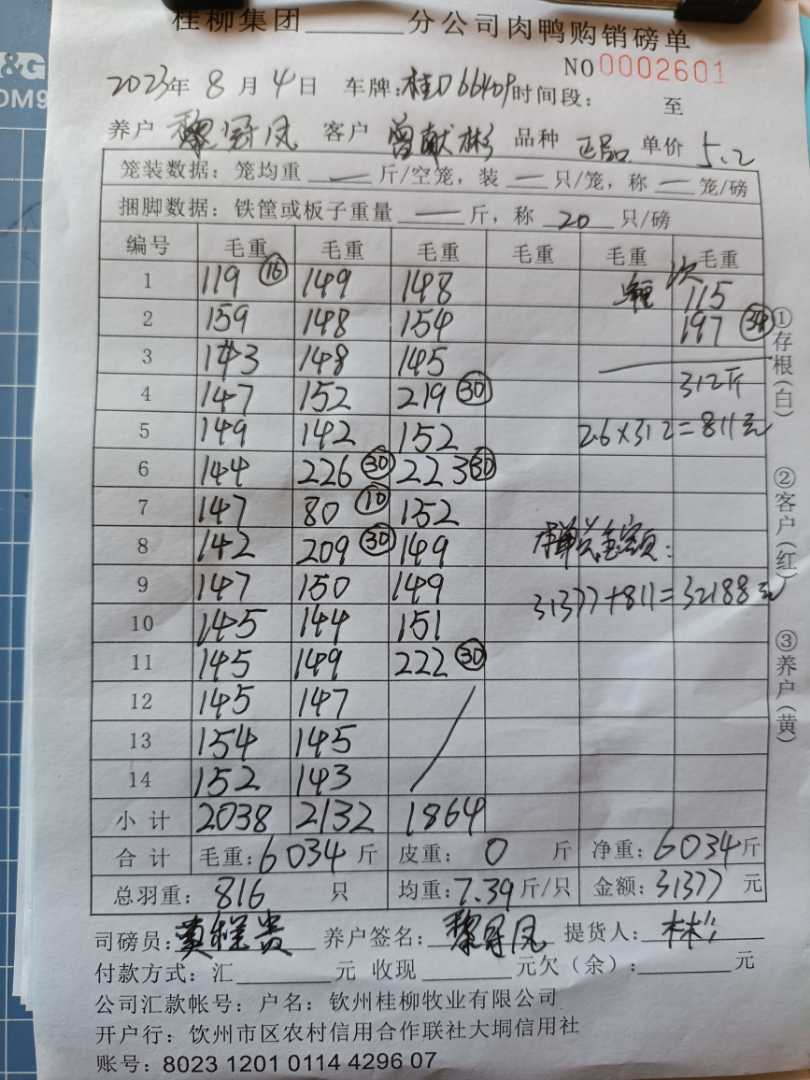 &G
DM9
桂柳集团______分公司肉鸭购销磅单
NO 0002601
2023年 8月 4日 车牌:桂D66409 时间段: 至
养户 黎冠凤 客户 曾献彬 品种 正品 单价 5.2
笼装数据: 笼均重 — 斤/空笼, 装 — 只/笼, 称 — 笼/磅
捆脚数据: 铁筐或板子重量 — 斤, 称 20 只/磅
编号 毛重 毛重 毛重 毛重 毛重 毛重
1 119 (16) 149 148 次 115
2 159 148 154 197 (34)
3 143 148 145
4 147 152 219 (30) 312斤
5 149 142 152 2.6×312=811元
6 144 226 (30) 223 (30)
7 147 80 (10) 152
8 142 209 (30) 149 本单总金额:
9 147 150 149 31377+811=32188元
10 145 144 151
11 145 149 222 (30)
12 145 147
13 154 145
14 152 143
小计 2038 2132 1864
合计 毛重:6034斤 皮重: 0 斤 净重: 6034斤
总羽重: 816 只 均重:7.39斤/只 金额:31377元
司磅员:黄程贵 养户签名: 黎冠凤 提货人: 彬
付款方式: 汇______元 收现______元欠(余):______元
公司汇款帐号: 户名: 钦州桂柳牧业有限公司
开户行: 钦州市区农村信用合作联社大垌信用社
账号: 8023 1201 0114 4296 07
①存根(白)
②客户(红)
③养户(黄)